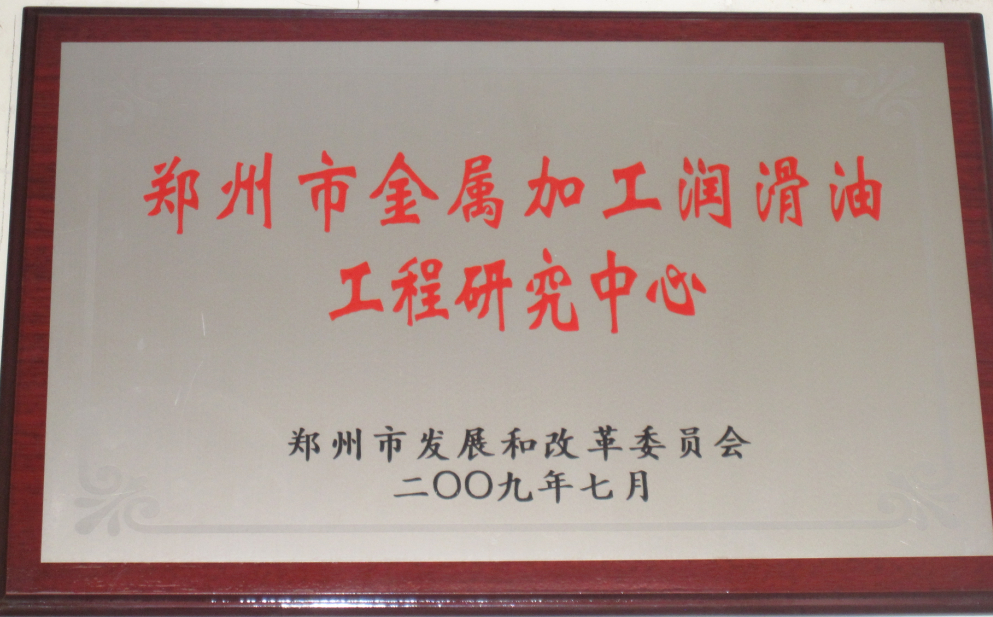 郑州市金属加工润滑油
工程研究中心
郑州市发展和改革委员会
二〇〇九年七月